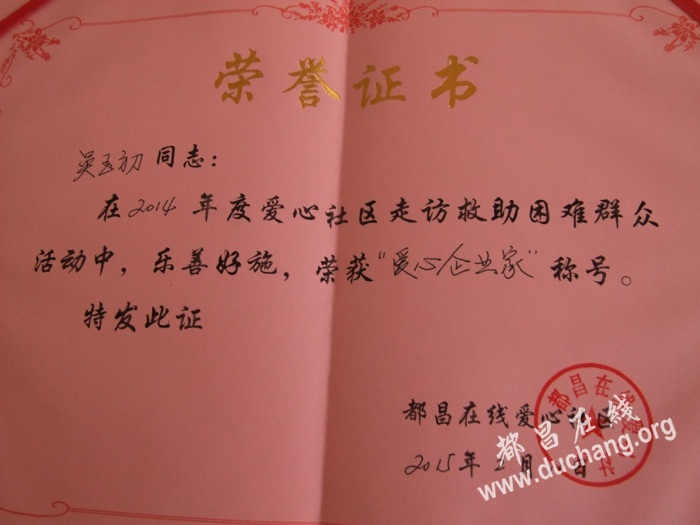 荣誉证书
吴五初 同志：
在2014年度爱心社区走访救助困难群众
活动中，乐善好施，荣获“爱心企业家”称号。
特发此证
都昌在线爱心社区
2015年 月 日
都昌在线
www.duchang.org